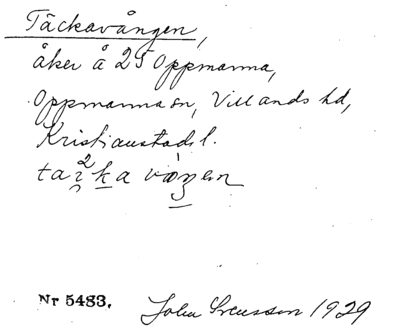 Täckavången,
åker å 25 Oppmanna,
Oppmanna sn, Villands hd,
Kristianstads l.
Nr 5483. John Svensson 1929